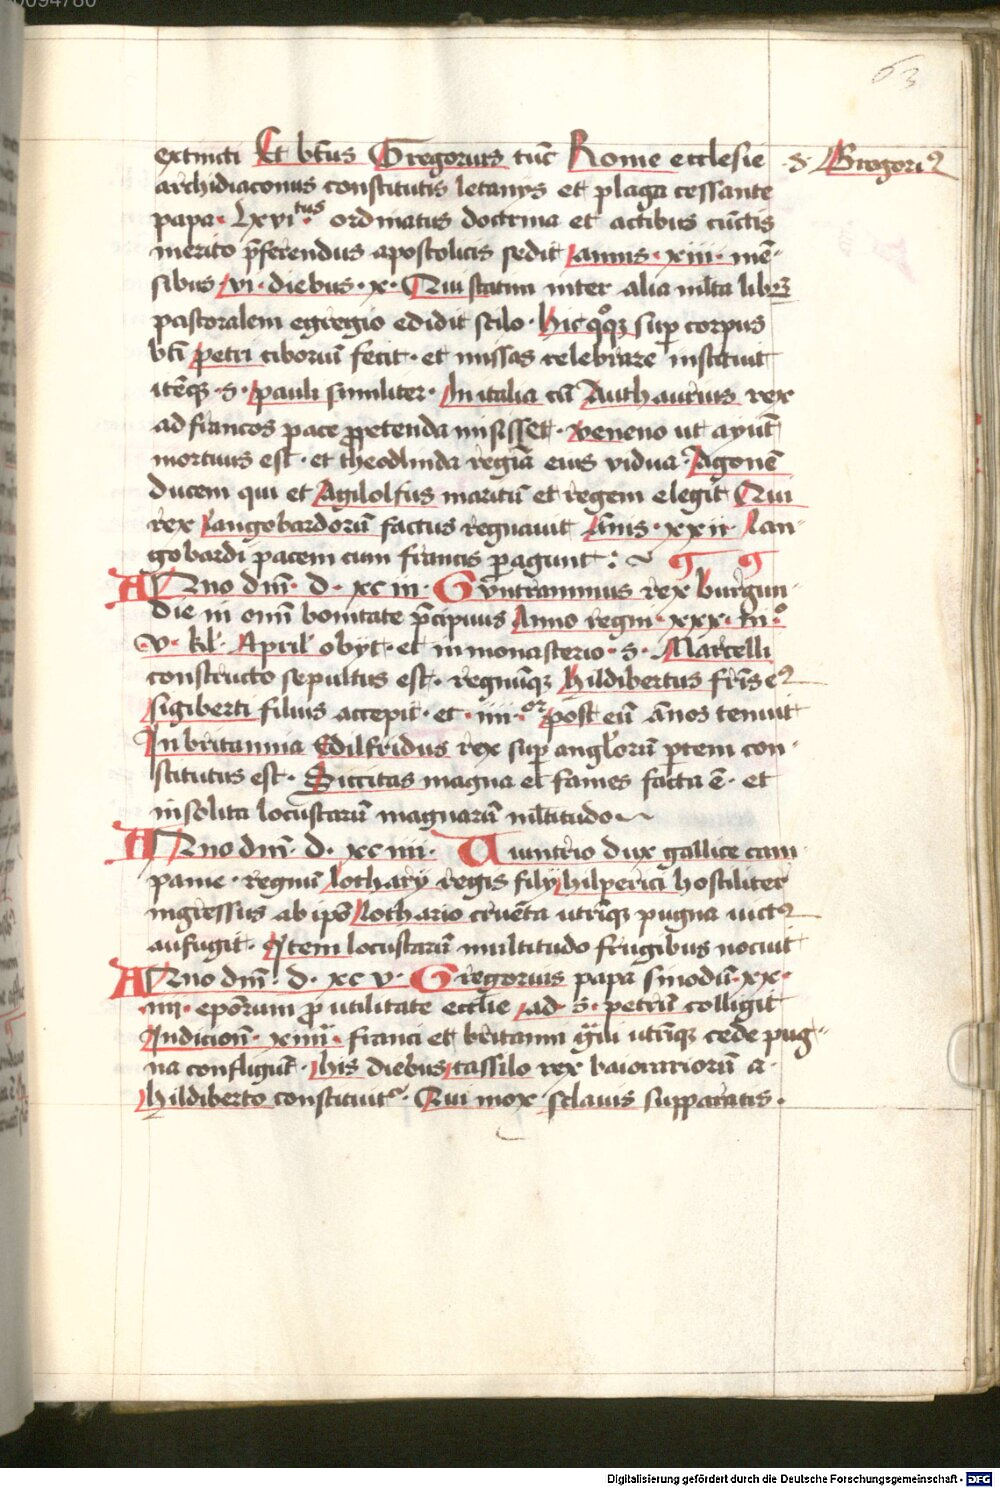 63
extincti Et bt̄us Gregorius tūc Rome ecclesie
·S· Gregori⁹
archidiaconus constitutis letanijs et plaga cessante
papa· Lxvi·tus ordinatus doctrina et actibus cūctis
merito p̄ferendus apostolicis sedit annis· xiii· mē-
sibus vi· diebus· x· Qui statim inter alia ml̄ta libꝝ
pastoralem egregio edidit stilo· hic qͦqꝫ suꝑ corpus
bt̄i petri ciboriū fecit· et missas celebrare instituit
itēqꝫ ·S· pauli similiter· In italia cū Autharius rex
ad francos pace ꝓpetenda misisset· veneno ut ayūt
mortuus est· et theodlinda regia eius vidua· Agonē
ducem qui et Agilolfus maritū et regem elegit Qui
rex langobardorū factus regnauit An̄is· xxii· lan-
gobardi pacem cum francis ꝑagunt:~
ANno dm̄· d· xciii· Gvntrammus rex burgun-
die in om̄i bonitate p̄cipuus Anno regni· xxx· iii·o
·v· kl· April· obyt· et in monasterio· S· Marcelli
constructo sepultus est· regnūqꝫ hildibertus fr̄is e⁹
sigiberti filius accepit· et· iiii·or post eū ānos tenuit
In britannia Edilfridus rex suꝑ anglorū ꝑtem con-
stitutus est· Siccitas magna et fames facta ē· et
insolita locustarū magnarū ml̄titudo~
ANno dm̄· d· xciiii· Uuintrio dux gallice cam-
panie· regnū lotharÿ regis filÿ hilperici hostiliter
ingressus ab ip̄o lothario cruēta utrīqꝫ pugna uict⁹
aufugit· Item locustarū multitudo frugibus nocuit
ANno dm̄· d· xcv· Gregorius papa sinodū· xx·
·iiii· ep̄orum ꝓ utilitate eccl̄ie ad· S· petrū colligit
Indicion̄· xiiii· franci et britanni g̈ili utrīqꝫ cede pug-
na confligūt· his diebus tassilo rex baioariorū a·
hildiberto constituit᷑· Qui mox sclauis supparatis·
Digitalisierung gefördert durch die Deutsche Forschungsgemeinschaft - DFG